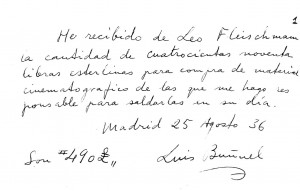 1
He recibido de Leo Fleischman
la cantidad de cuatrocientas noventa
libras esterlinas para compra de material
cinematografico de las que me hago res
ponsable para saldarlas en su día.
Madrid 25 Agosto 36
Son #490£„ Luis Buñuel